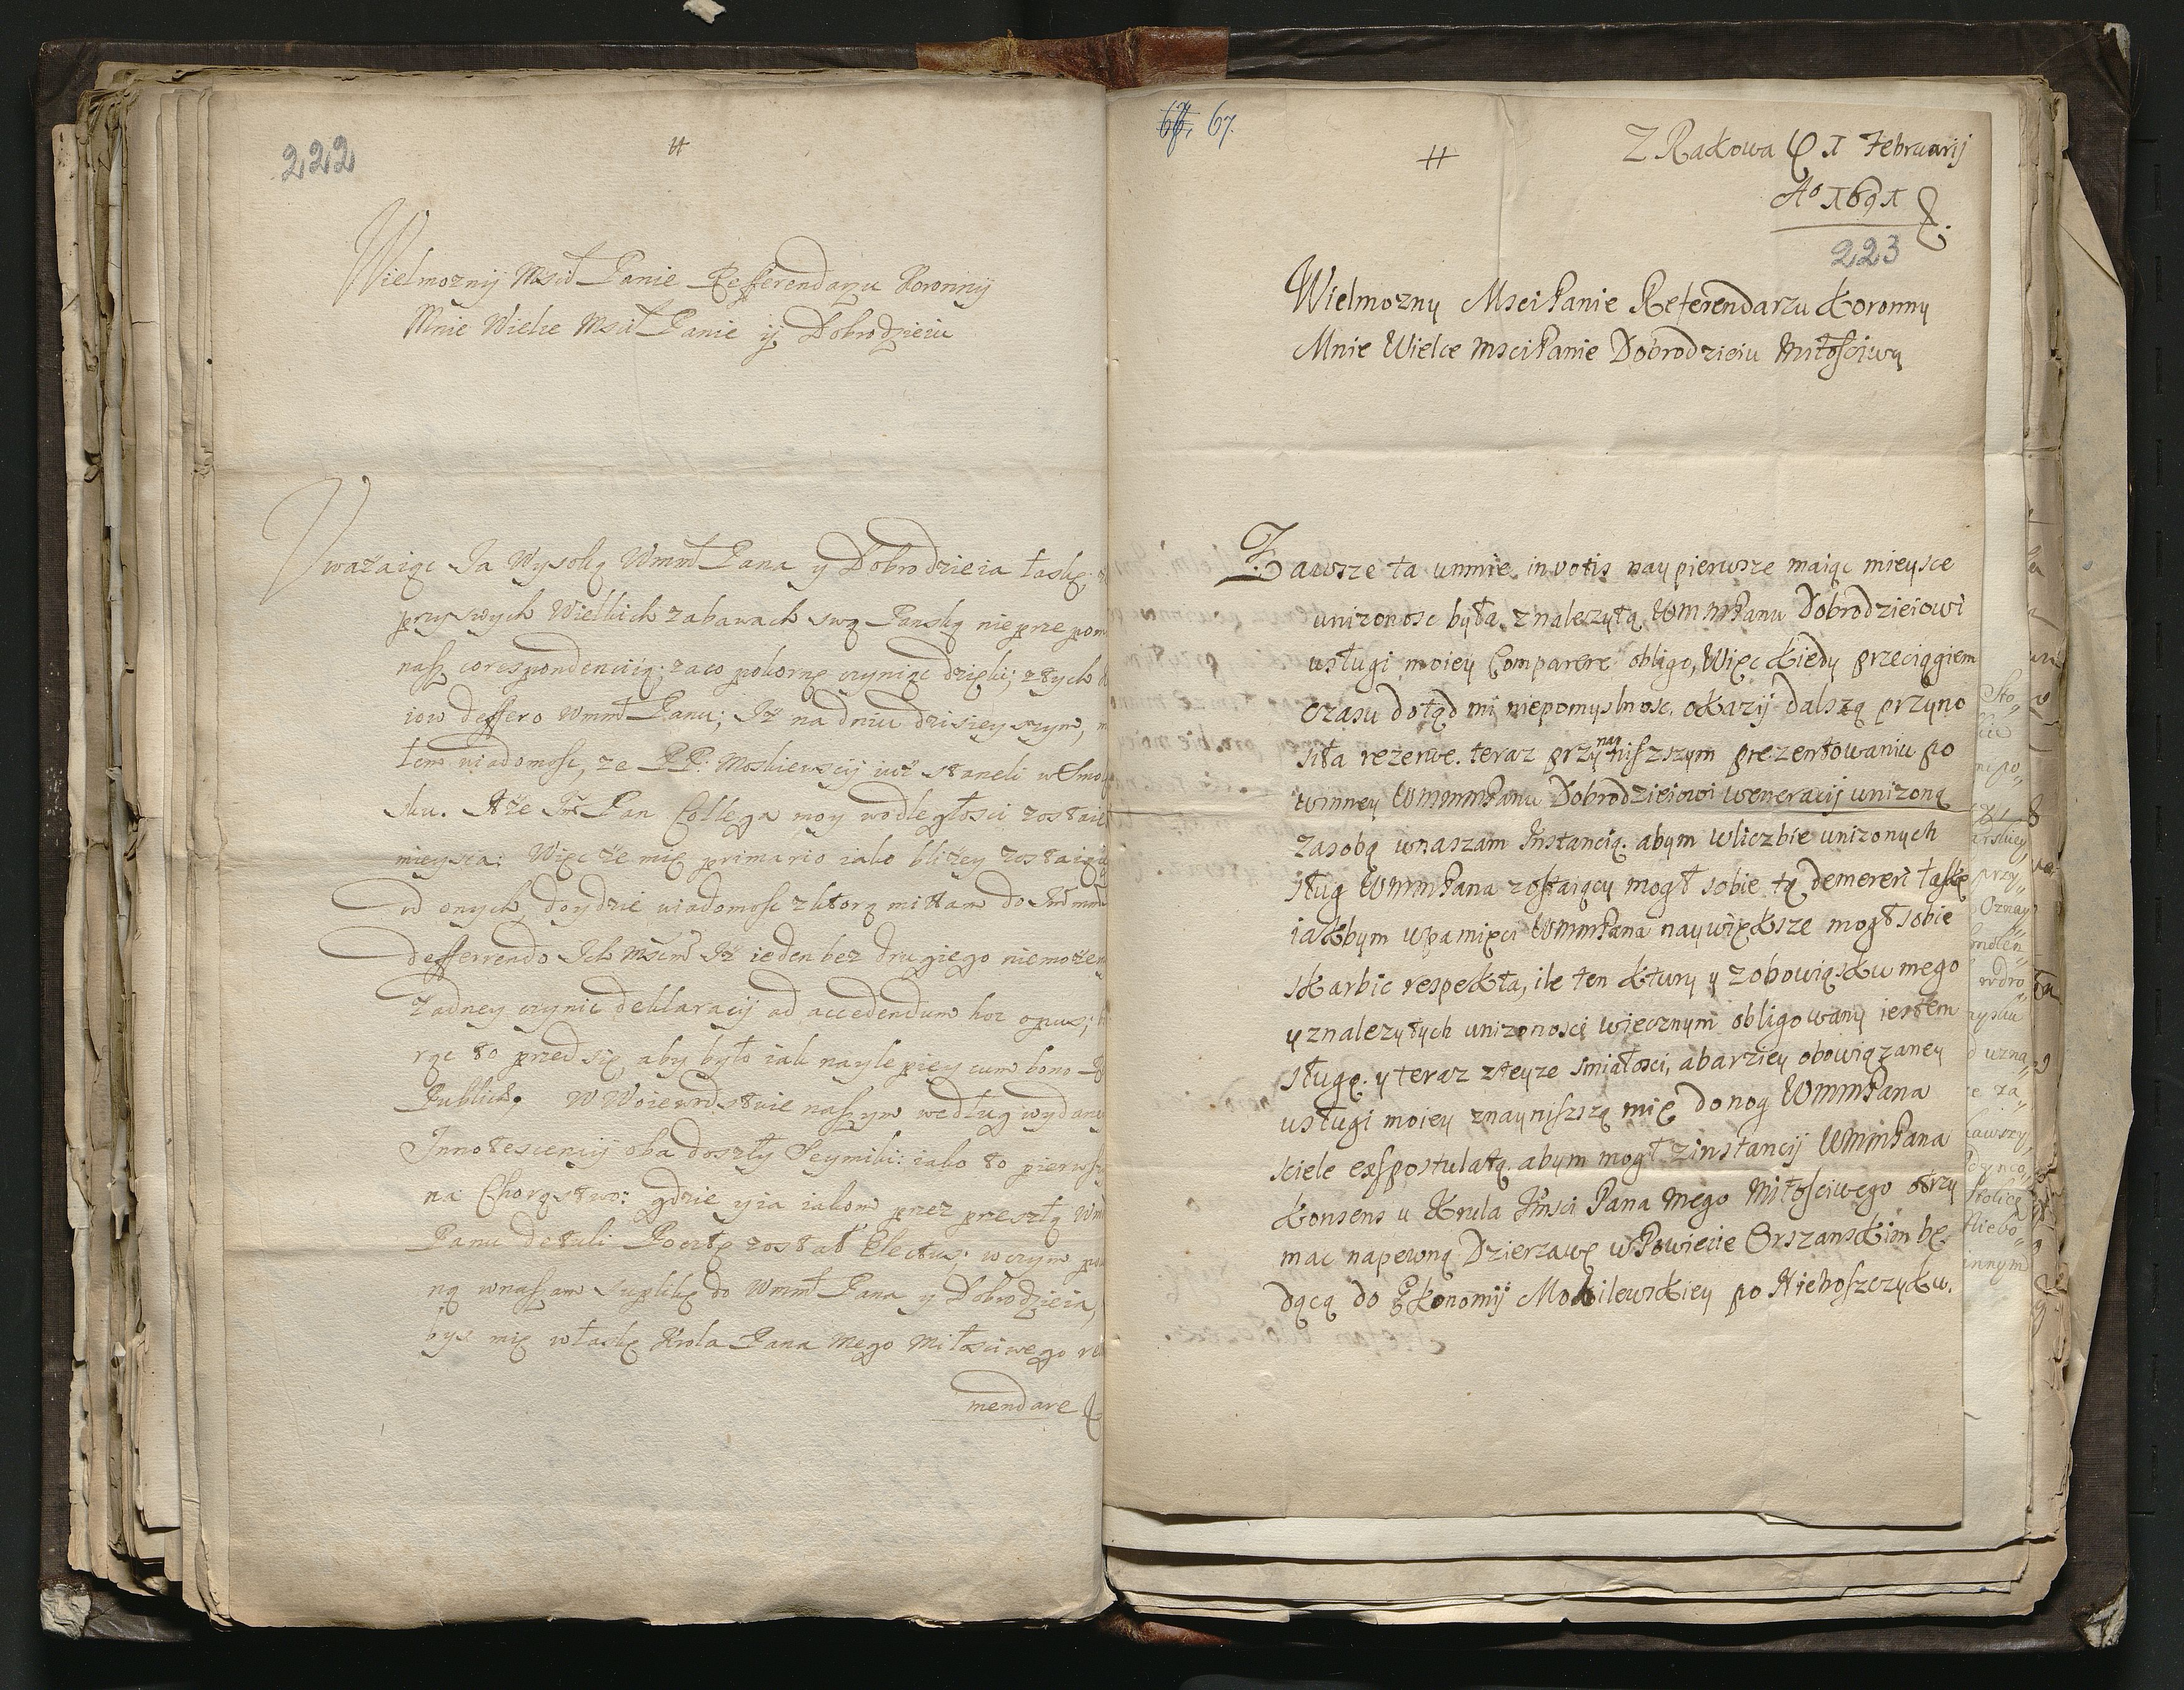 222
#
Wielmoznij Mscił Panie Refferendarzu Koronnij
Mnie Wielce Mscił Panie ÿ Dobrodzieiu
Uważaiąc Ia Wysoką Wmmł Pana y Dobrodzieia łaskę,
przy swych Wielkich zabawach swą Panską nieprzepom
naszą corespondencÿią; zaco pokorne czyniąc dzięki; z tych
iow deffero Wmmł Panu; Iż na dniu dzisieyszym,
łem wiadomosc, ze PP: Moskiewscÿ iuż staneli w Smo
sku. A że Pan Collega moy w odległosci zostaie
mieysca: Więc że mię primario iako bliżey zostaiąc
od onych, doydzie wiadomosc z ktorą mittam do
defferrendo Ich Mscm Iż ieden bez drugiego niemoże
żadney czynic deklaracÿi ad accedendum hoc opus;
rąc to przed się, aby było iak naylepiey cum bono
Publico. W Woiewodstwie naszym według wydan
Innotescencÿi oba doszły Seymiki: iako to pierwszy
na Chorąstwo: gdzie y ia iakom przez przeszłą Wm
Panu detuli Pocztę został Electus; w czym po
ną wnaszam supplikę do Wmmł Pana y Dobrodzieia,
bys mię w łaskę Krola Pana Mego Miłosciwego re
mendare
67.
#
Z Rakowa D 1 Februarij
Ao 1691
223
Wielmozny Msci Panie Referendarzu Koronny
Mnie Wielce Msci Panie Dobrodzieiu Miłosciwy
Zawsze ta u mnie in votis naypierwsze maiąc mieysce
unizonosc była, z nalezytą WMMPanu Dobrodzieiowi
usługi moiey comparere obligo, Więc kiedy przeciągiem
czasu dotąd mi niepomyslnosc okazij dalszą przyno
siła rezerwe. teraz przy nayniższym prezentowaniu po
winney WMMMPanu Dobrodzieiowi weneracij unizoną
za sobą wnaszam Instancią. abym w liczbie unizonych
sług WMMPana zostaiący mogł sobie tą demereri łaskę
iakbym w pamięci WMMPana naywiększe mogł sobie
skarbic respekta, ile ten ktury y z obowiąsku mego
y z nalezytych unizonosci wiecznym obligowany iestem
sługą. y teraz z teyze smiałosci, a barziey obowiązaney
usługi moiey z nayniższą mię do nog WMMPana
sciele expostulatą. abym mogł z instancij WMMPana
konsens u Krula Jmsci Pana Mego Miłosciwego otrzy
mac na pewną Dzierzawę w Powiecie Orszanskim bę
dącą do Ekonomij Mohilewskiey po Niehoszczyku.